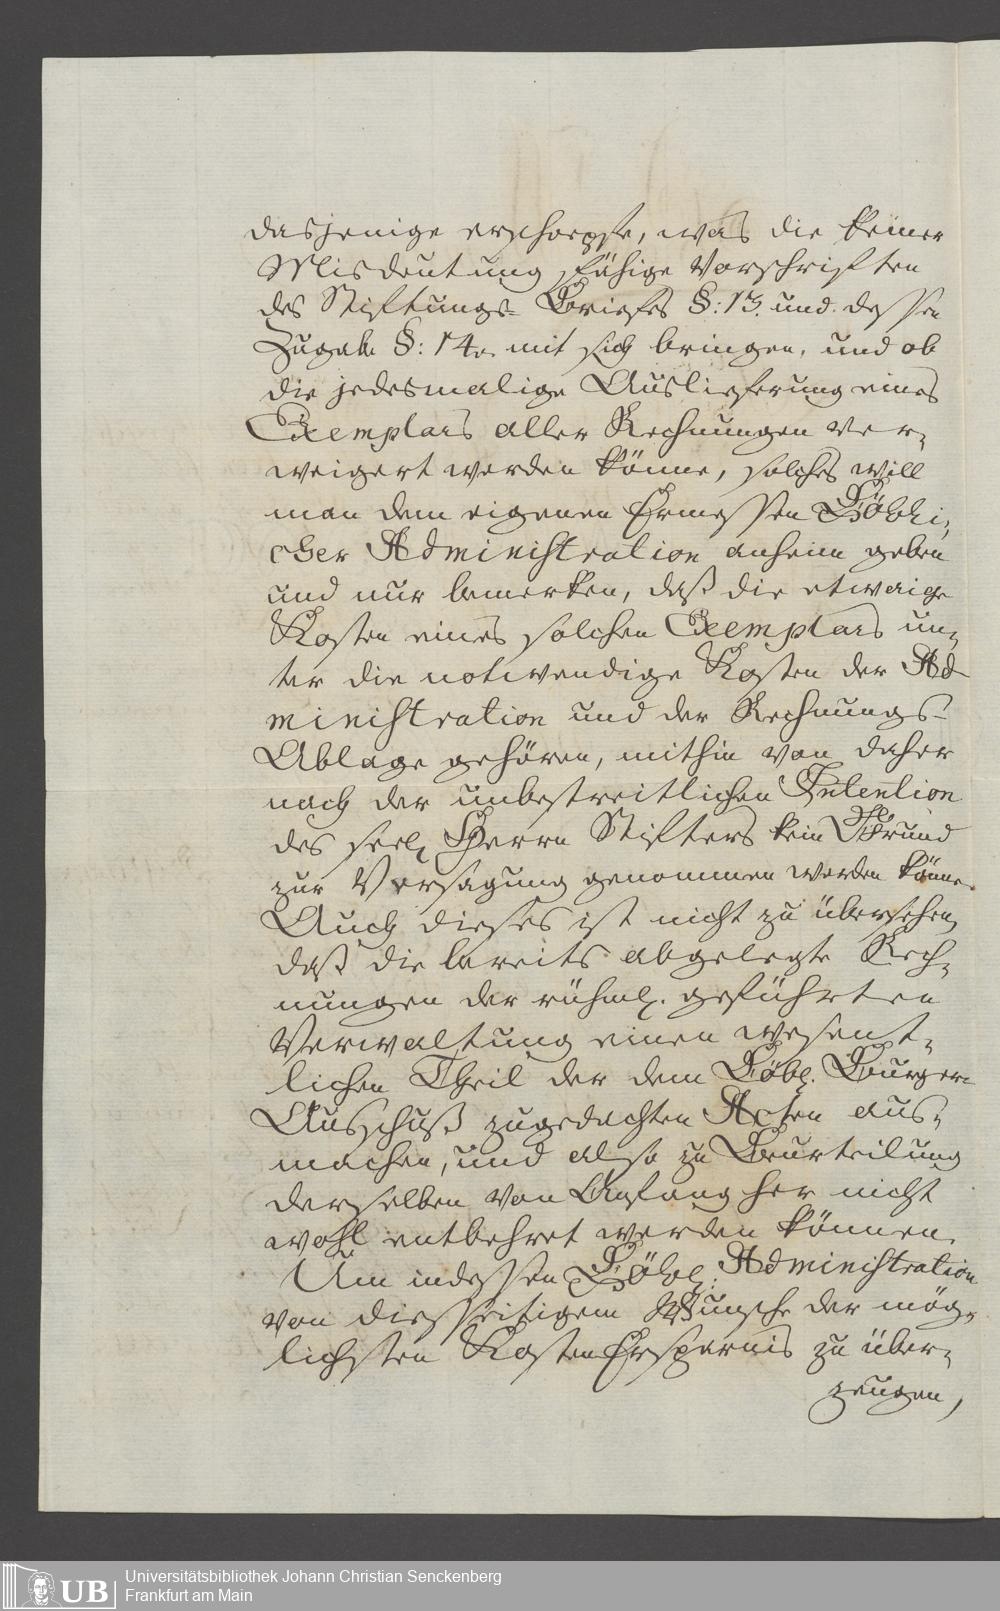 dasjenige erschoepfe, was die keiner
Misdeutung fähige Vorschriften
des Stiftungs-Briefes §: 13. und dessen
Zugabe §: 14. mit sich bringen, und ob
die jedesmalige Auslieferung eines
Exemplars aller Rechnungen ver-
weigert werden könne, solches will
man dem eigenen Ermessen Löbli-
cher Administration anheim geben
und nur bemerken, daß die etwaige
Kosten eines solchen Exemplars un-
ter die notwendige Kosten der Ad-
ministration und der Rechnungs-
Ablage gehören, mithin von daher
nach der unbestreitlichen Intention
des seel. Herrn Stifters kein Grund
zur Versagung genommen werden könne.
Auch dieses ist nicht zu übersehen,
daß die bereits abgelegte Rech-
nungen der rühml. geführten
Verwaltung einen wesent-
lichen Theil der dem Löbl. Burger-
Ausschuß zugedachten Acten aus-
machen, und also zu Beurteilung
derselben von Anfang her nicht
wohl entbehret werden können.
Um indessen Löbl. Administration
von diesseitigem Wunsche der mög-
lichsten Kosten Ersparnis zu über-
zeugen,
UB
Universitätsbibliothek Johann Christian Senckenberg
Frankfurt am Main